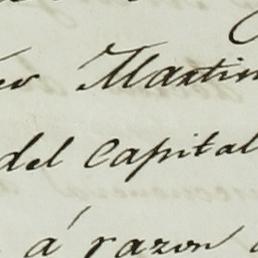 Martin
del Capital
á razon